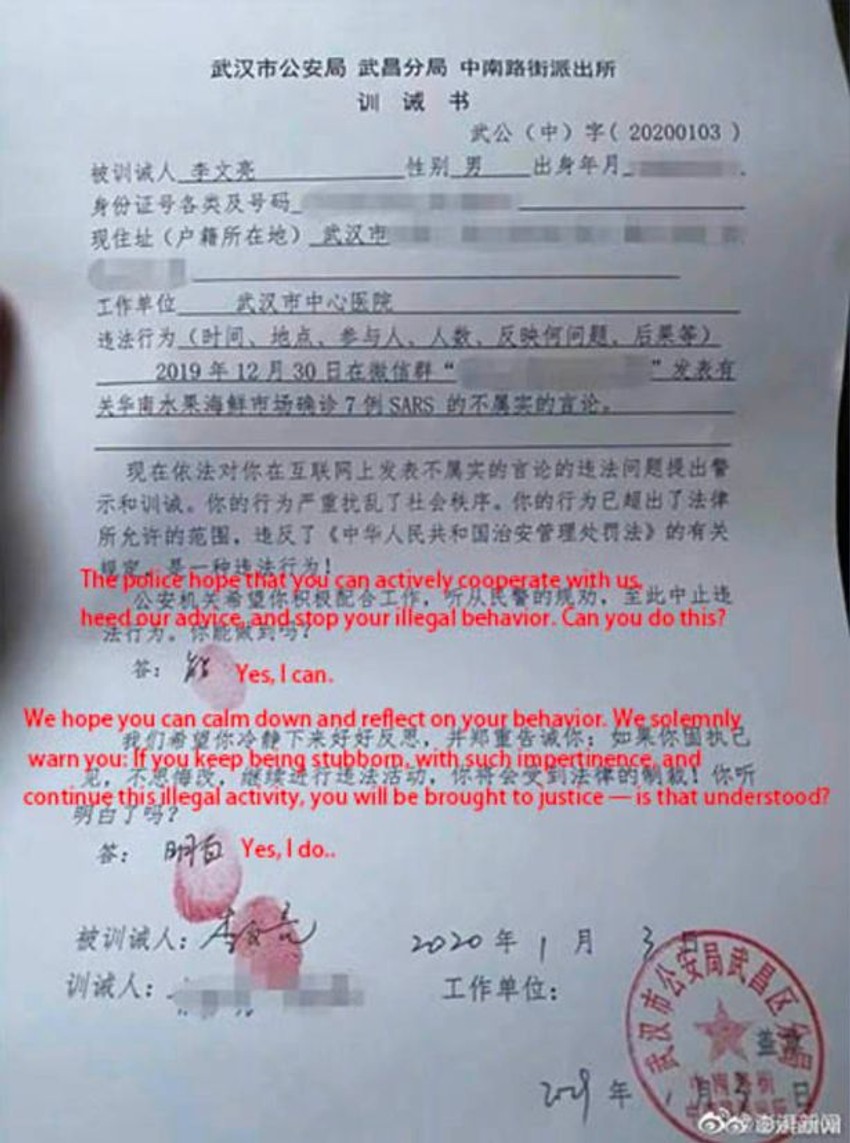 武汉市公安局 武昌分局 中南路街派出所
训 诫 书
武公（中）字( 20200103 )
被训诫人 李文亮 性别 男 出身年月
身份证号各类及号码
现住址（户籍所在地） 武汉市
工作单位 武汉市中心医院
违法行为（时间、地点、参与人、人数、反映何问题、后果等）
2019 年 12 月 30 日在微信群“ ”发表有
关华南水果海鲜市场确诊 7 例 SARS 的不属实的言论。
现在依法对你在互联网上发表不属实的言论的违法问题提出警
示和训诫。你的行为严重扰乱了社会秩序。你的行为已超出了法律
所允许的范围，违反了《中华人民共和国治安管理处罚法》的有关
规定，是一种违法行为！
The police hope that you can actively cooperate with us,
公安机关希望你积极配合工作，听从民警的规劝，至此中止违
heed our advice, and stop your illegal behavior. Can you do this?
法行为。你能做到吗？
答： 能 Yes, I can.
We hope you can calm down and reflect on your behavior. We solemnly
我们希望你冷静下来好好反思，并郑重告诫你：如果你固执己
warn you: If you keep being stubborn, with such impertinence, and
见，不思悔改，继续进行违法活动，你将会受到法律的制裁！你听
continue this illegal activity, you will be brought to justice — is that understood?
明白了吗？
答： 明白 Yes, I do..
被训诫人：李文亮 2020 年 1 月 3 日
训诫人： 工作单位：
武汉市公安局武昌区分局
年 1 月 3 日
澎湃新闻